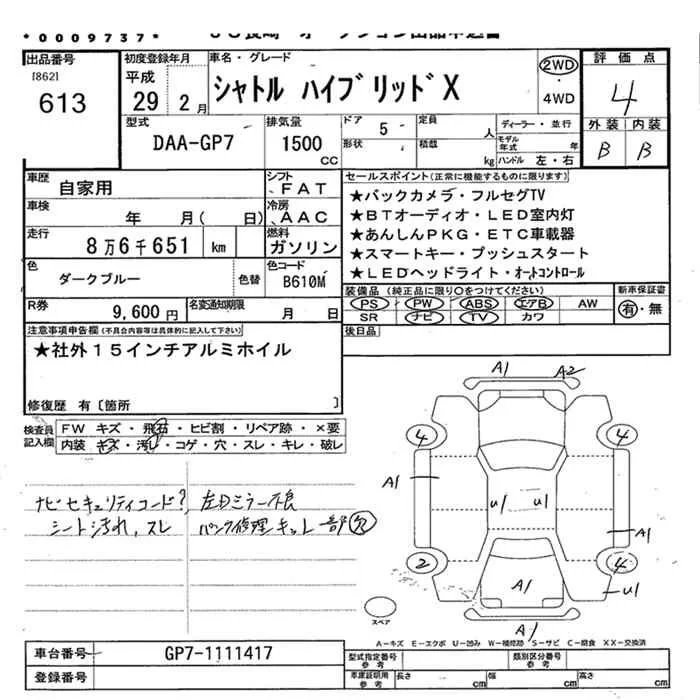 *0009737*
出品番号
[862]
613
初度登録年月
平成
29 2月
車名・グレード
シャトル ハイブリッドX
2WD
・
4WD
評価点
4
外装 内装
B B
型式
DAA-GP7
排気量
1500
CC
ドア 5
定員 人
形状
積載 kg
ディーラー・並行
モデル年式 年
ハンドル 左・右
車歴
自家用
シフト
FAT
車検
年 月( 日)
冷房
AAC
走行
8万6千651 km
燃料
ガソリン
色
ダークブルー
色替
色コード
B610M
R券
9,600円
名変通知期限
月 日
セールスポイント(正常に機能するものに限ります)
★バックカメラ・フルセグTV
★BTオーディオ・LED室内灯
★あんしんPKG・ETC車載器
★スマートキー・プッシュスタート
★LEDヘッドライト・オートコントロール
装備品 (純正品に限り○をつけてください)
PS PW ABS エアB AW
SR ナビ TV カワ
新車保証書
有・無
後日品
注意事項申告欄(不具合内容等は具体的に記入して下さい)
★社外15インチアルミホイル
修復歴 有〔箇所 〕
検査員
記入欄
FW キズ・飛石・ヒビ割・リペア跡・×要
内装 キズ・汚れ・コゲ・穴・スレ・キレ・破レ
ナビセキュリティコード? 左Dミラー不良
シート汚れ、スレ パンク修理キット一部欠
A1 A2
4 4
A1
U1 U1
A1
2 4
A1
U1
A1
スペア
A-キズ E-エクボ U-凹み W-補修跡 S-サビ C-腐食 XX-交換済
車台番号
GP7-1111417
登録番号
型式指定番号
参考
類別区分番号
参考
車庫証明用
参考
長さ cm
幅 cm
高さ cm